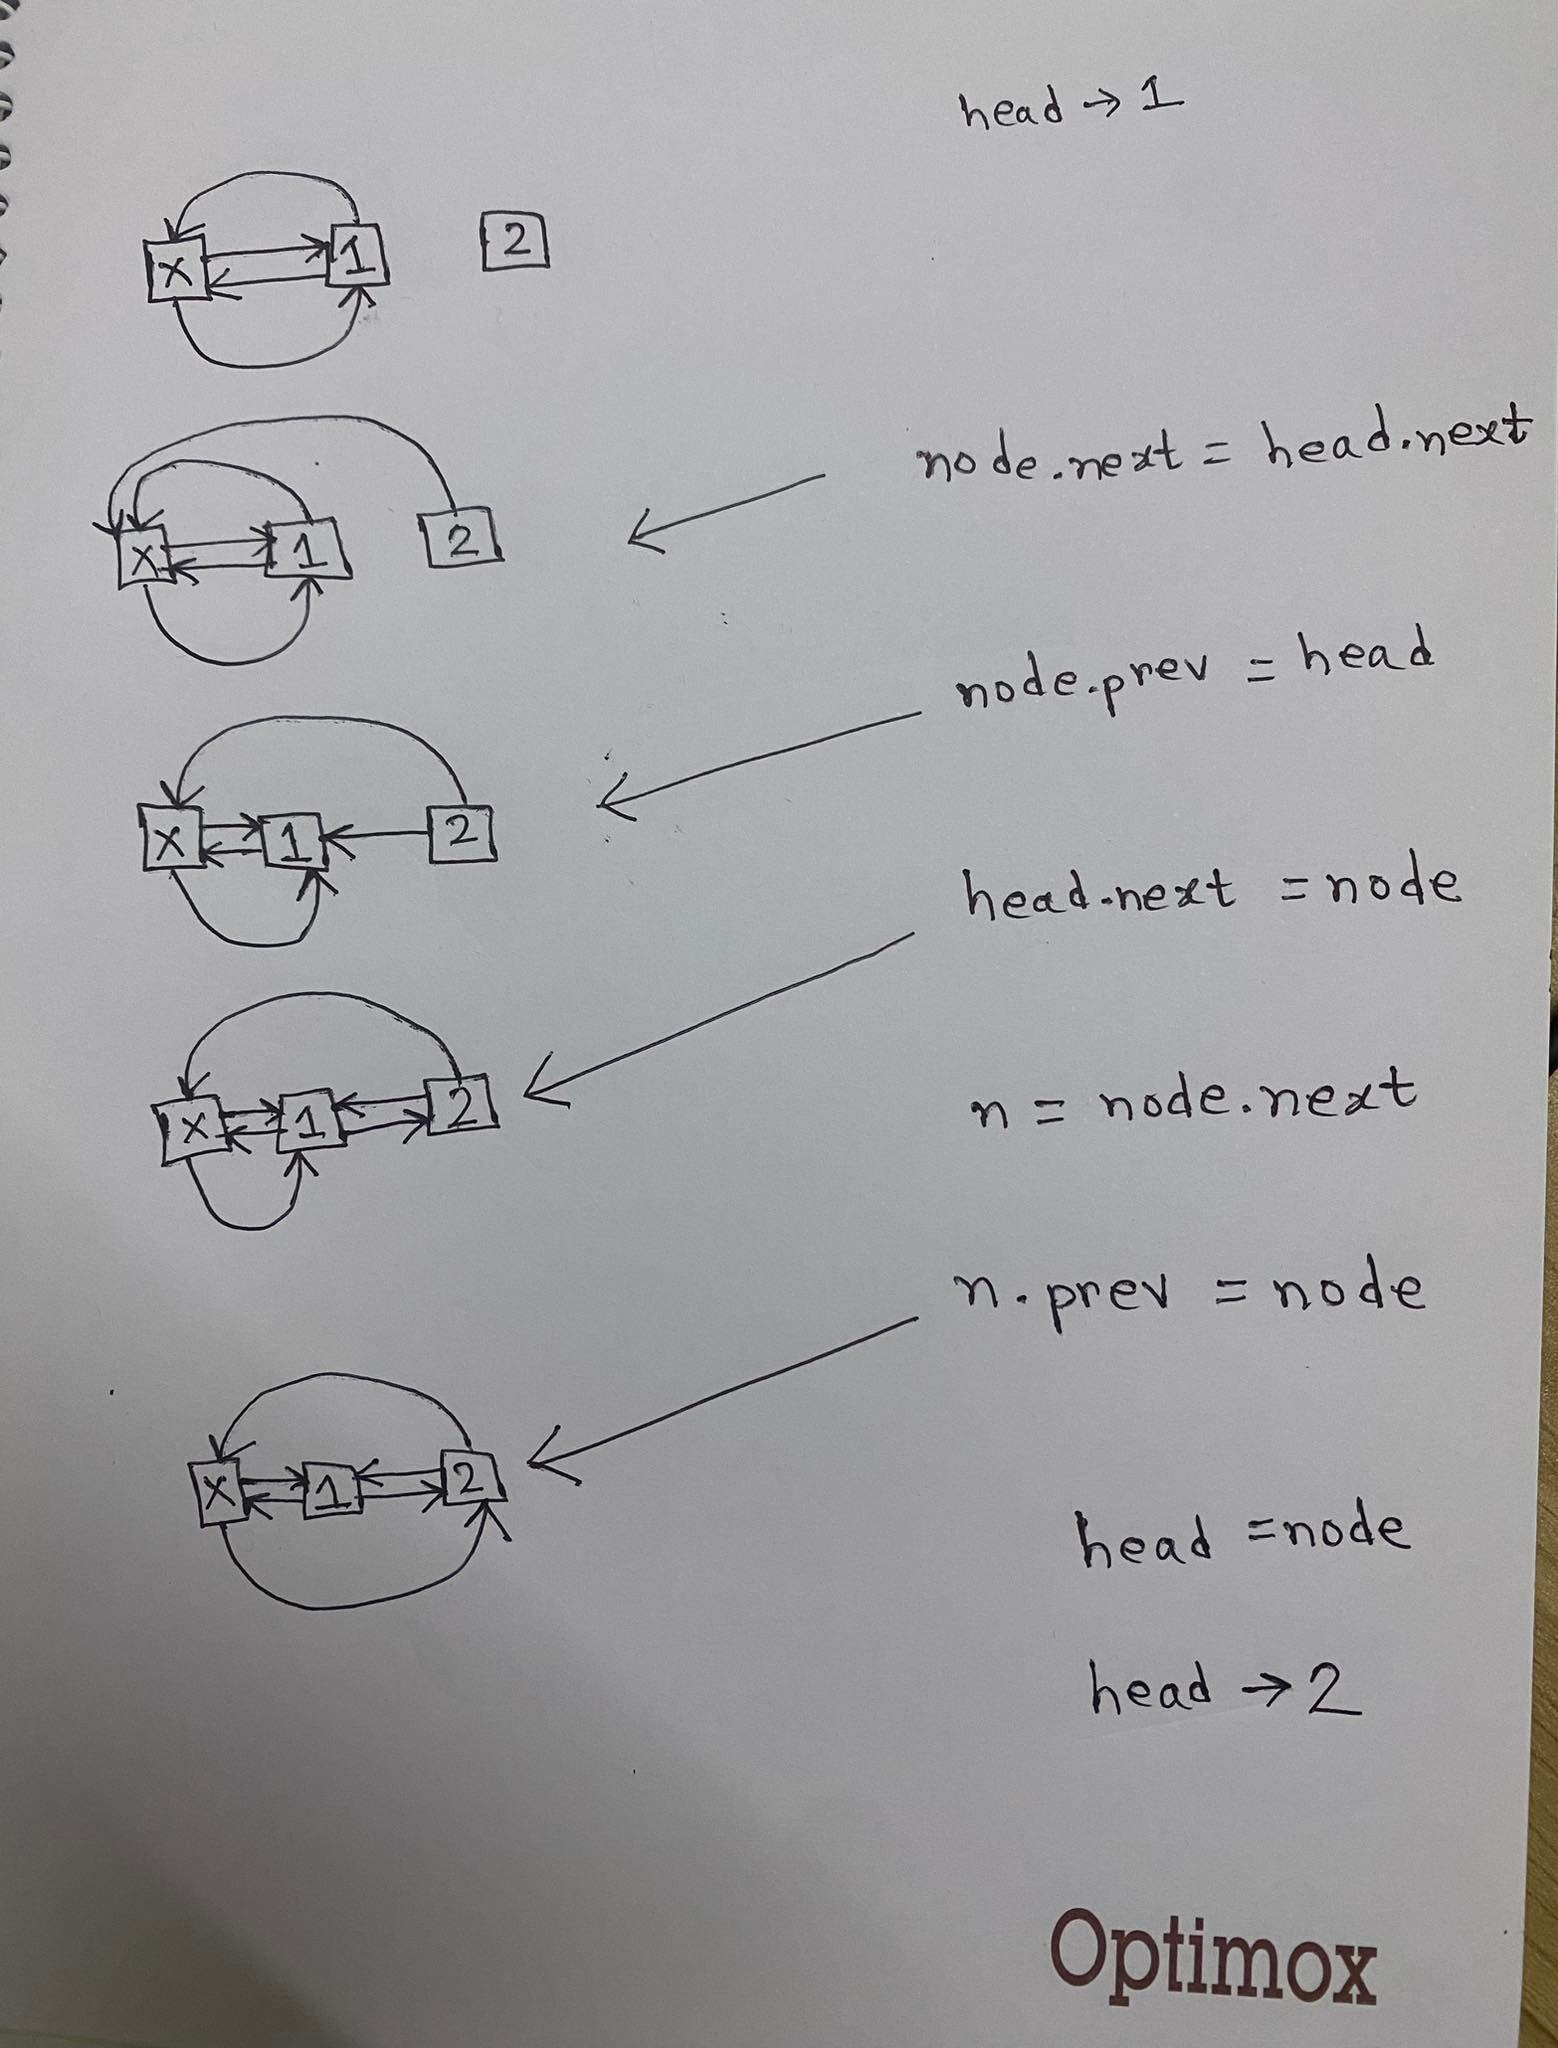 head → 1
X 1 2
node.next = head.next
X 1 2
node.prev = head
X 1 2
head.next = node
X 1 2
n = node.next
n.prev = node
X 1 2
head = node
head → 2
Optimox